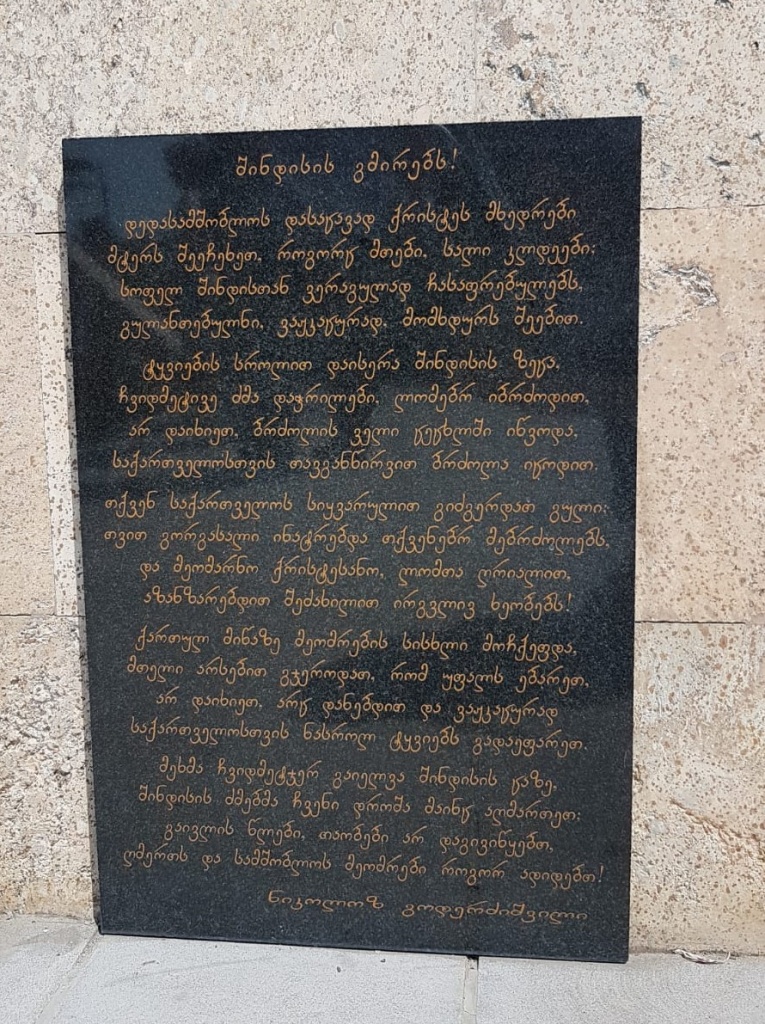 შინდისის გმირებს!
დედასამშობლოს დასაცავად ქრისტეს მხედრები
მტერს შეეჩეხეთ, როგორც მთები, სალი კლდეები;
სოფელ შინდისთან ვერაგულად ჩასაფრებულებს,
გულანთებულნი, ვაჟკაცურად, მომხდურს შეებით.
ტყვიების სროლით დაისერა შინდისის ზეცა,
ჩვიდმეტივე ძმა დაჭრილები, ლომებრ იბრძოდით,
არ დაიხიეთ, ბრძოლის ველი ცეცხლში იწვოდა,
საქართველოსთვის თავგანწირვით ბრძოლა იცოდით.
თქვენ საქართველოს სიყვარულით გიძგერდათ გული;
თვით გორგასალი ინატრებდა თქვენებრ მებრძოლებს,
და მეომარნო ქრისტესანო, ლომთა ღრიალით,
აზანზარებდით შეძახილით ირგვლივ ხეობებს!
ქართულ მიწაზე მეომრების სისხლი მოჩქეფდა,
მთელი არსებით გჯეროდათ, რომ უფალს ებარეთ,
არ დაიხიეთ, არც დანებდით და ვაჟკაცურად
საქართველოსთვის ნასროლ ტყვიებს გადაეფარეთ.
მეხმა ჩვიდმეტჯერ გაიელვა შინდისის ცაზე,
შინდისის ძმებმა ჩვენი დროშა მაინც აღმართეთ;
გაივლის წლები, თაობები არ დაგივიწყებთ,
ღმერთს და სამშობლოს მეომრები როგორ ადიდებთ!
ნიკოლოზ გოდერძიშვილი